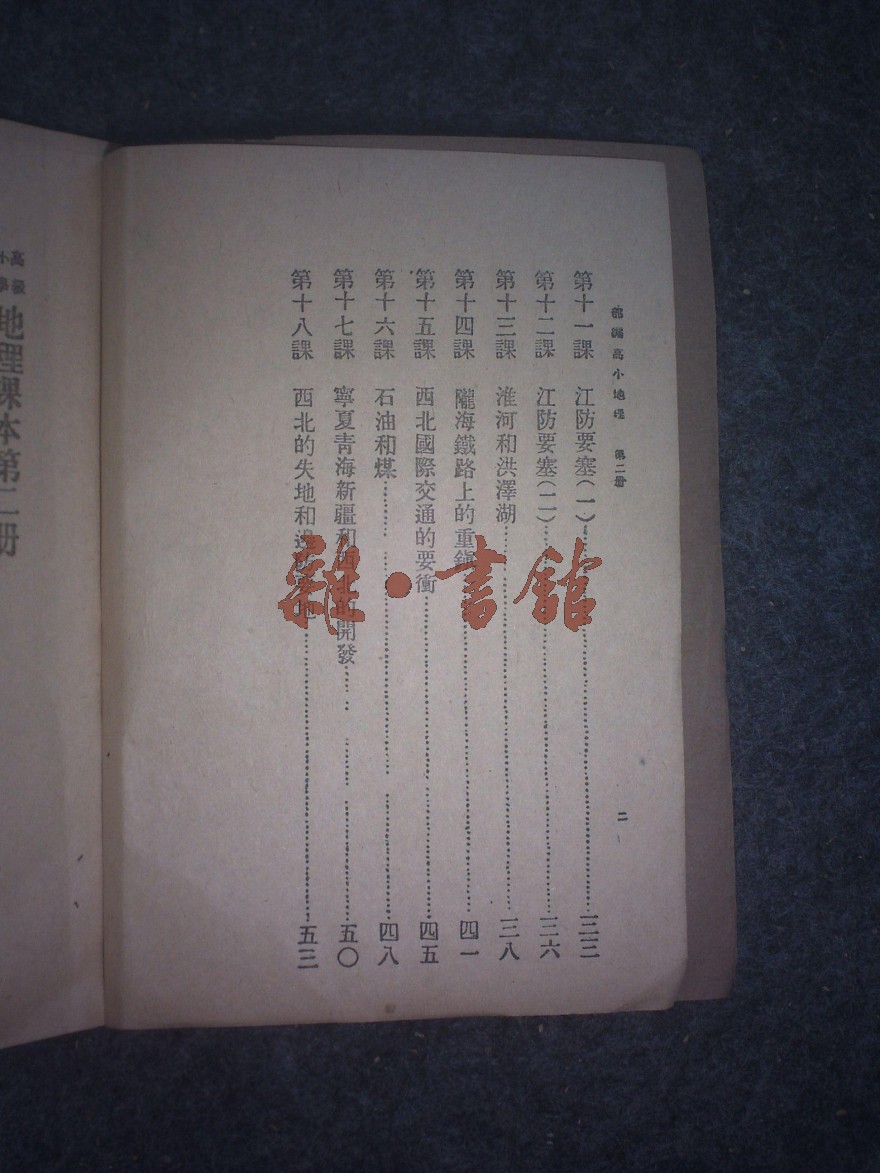 部編高小地理 第二冊 二
第十一課 江防要塞(一)……三三
第十二課 江防要塞(二)……三六
第十三課 淮河和洪澤湖……三八
第十四課 隴海鐵路上的重鎮……四一
第十五課 西北國際交通的要衝……四五
第十六課 石油和煤……四八
第十七課 寧夏青海新疆和西北的開發……五〇
第十八課 西北的失地和邊防要地……五三
高級小學 地理課本第二冊
雜·書館